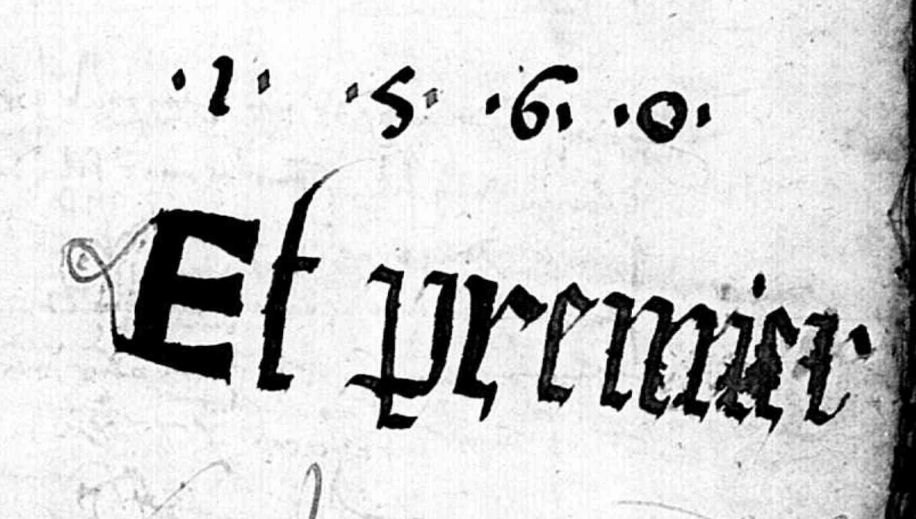 ·1· ·5· ·6· ·0·
Et premier